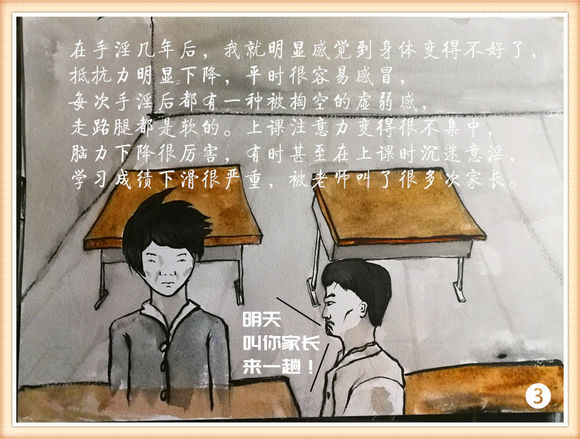 在手淫几年后，我就明显感觉到身体变得不好了，
抵抗力明显下降，平时很容易感冒，
每次手淫后都有一种被掏空的虚弱感，
走路腿都是软的。上课注意力变得很不集中，
脑力下降很厉害，有时甚至在上课时沉迷意淫，
学习成绩下滑很严重，被老师叫了很多次家长。
明天
叫你家长
来一趟！
3